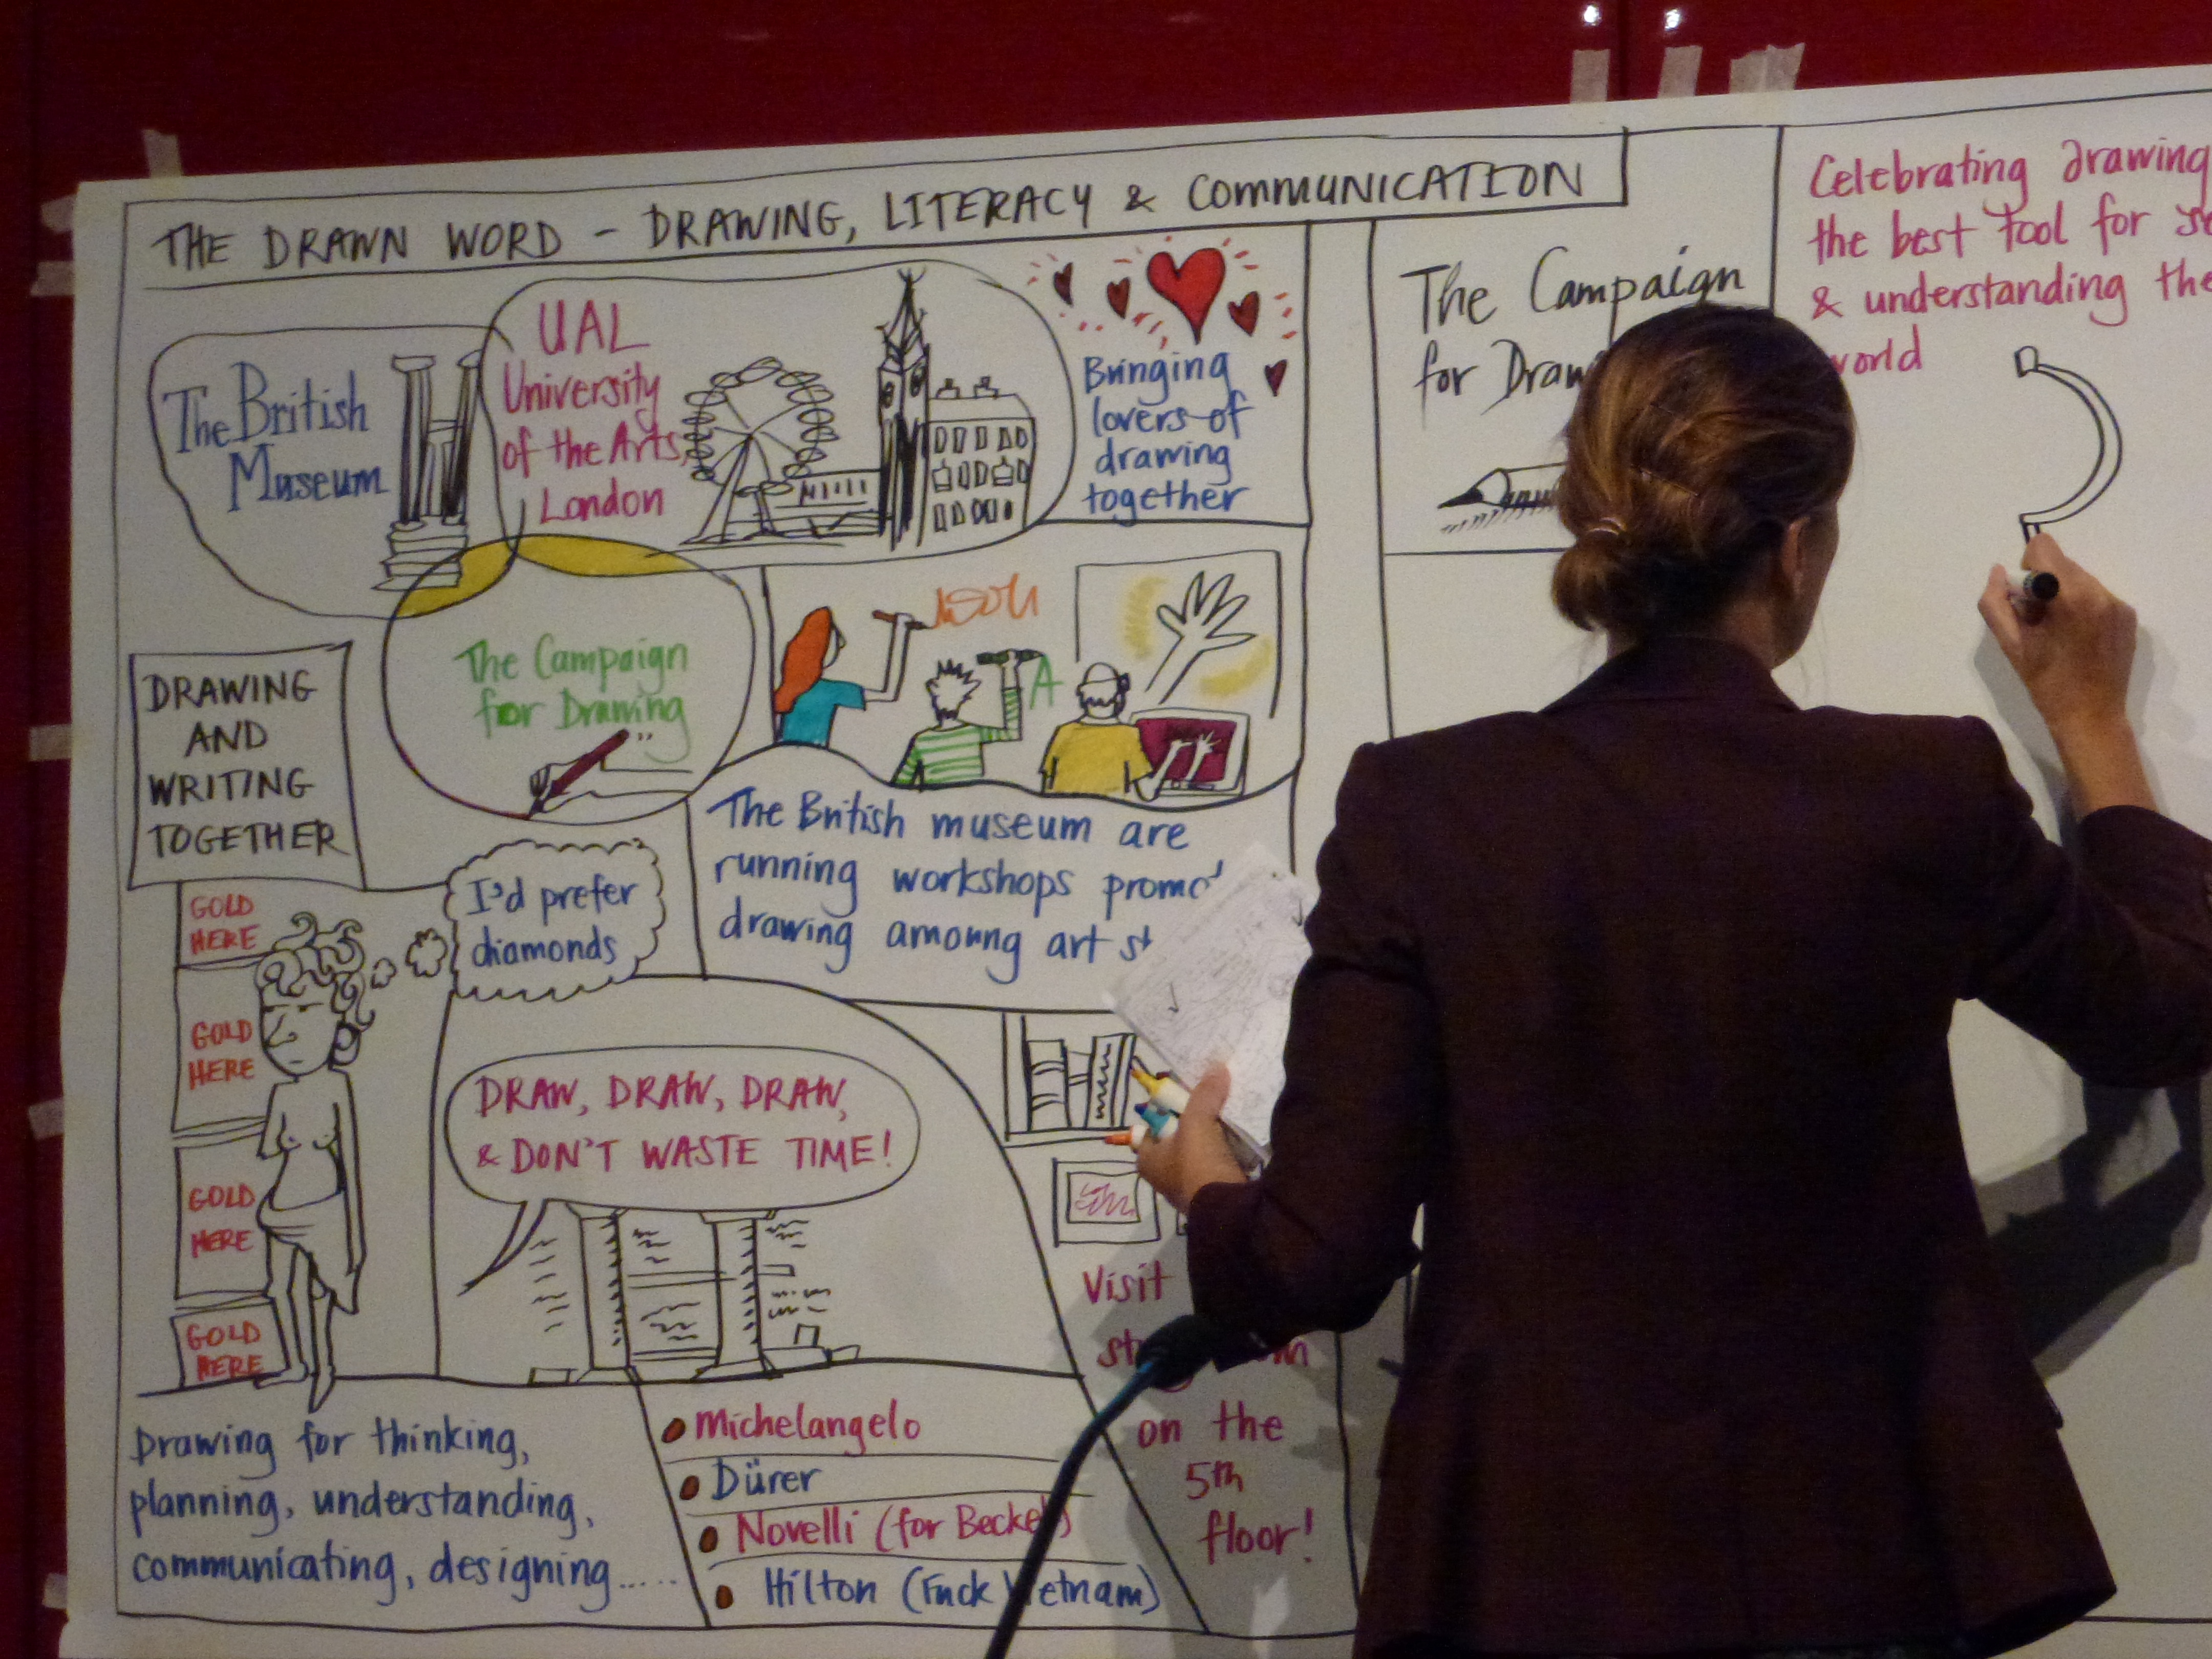 THE DRAWN WORD - DRAWING, LITERACY & COMMUNICATION
The British
Museum
UAL
University
of the Arts,
London
Bringing
lovers of
drawing
together
The Campaign
for Drawing
A
DRAWING
AND
WRITING
TOGETHER
The British museum are
running workshops
drawing amoung art
GOLD
HERE
GOLD
HERE
GOLD
HERE
GOLD
HERE
I'd prefer
diamonds
DRAW, DRAW, DRAW,
& DON'T WASTE TIME!
Drawing for thinking,
planning, understanding,
communicating, designing.....
Michelangelo
Dürer
Novelli (for
Hilton (Fuck Vietnam)
Visit
on the
5th
floor!
The Campaign
for
Celebrating drawing
the best tool for
& understanding the
world